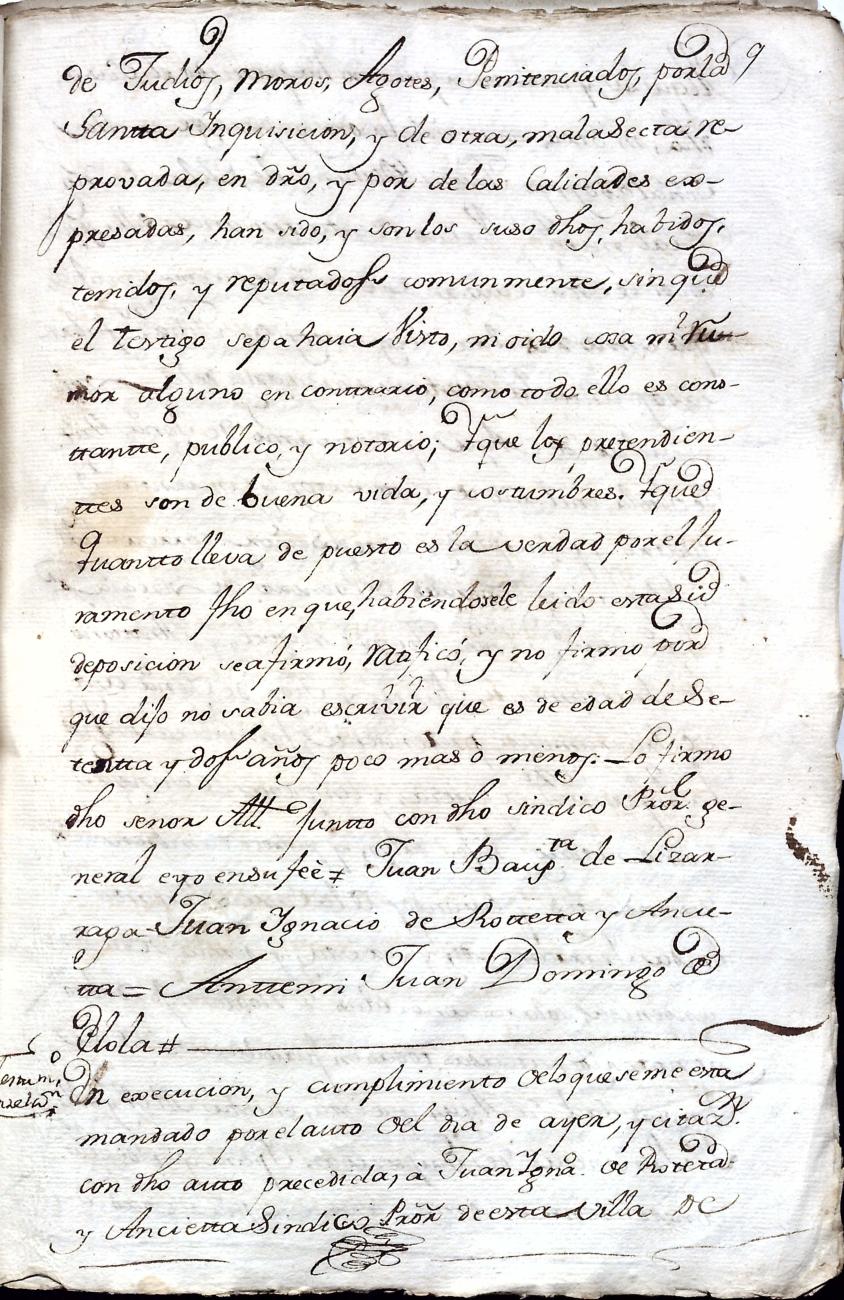 de Judios, Moros, Agotes, Penitenciados, por la 9
Santta Inquisicion, y de otra, mala Secta re-
provada, en dro, y por de las Calidades ex-
presadas, han sido, y son los suso dhos, habidos,
tenidos, y reputados comunmente, sin que
el testigo sepa haia Visto, ni oido cosa ni Ru-
mor alguno en contrario, como todo ello es cons-
ttantte, publico, y notorio; Y que los pretendien-
ttes son de buena vida, y costumbres. Y que
Quantto lleva de puesto es la verdad por el Ju-
ramento fho en que, habiendosele leido esta su
deposicion se afirmó, ratificó, y no firmo por
que dijo no sabia escrivir que es de edad de Se-
tentta y dos años poco mas ò menos. Lo firmo
dho señor All. Juntto con dho sindico Pror. ge-
neral e yo en su feè = Juan Baupta de Lizar-
rapa = Juan Ygnacio de Rottetta y Ancie-
tta = Anttemi Juan Domingo de
Elola #
En execucion, y cumplimiento de lo que se me esta
mandado por el auto del dia de ayer, y citaz.n
con dho auto precedida, à Juan Ygn.o de Rotetta
y Ancietta Sindico Pror de esta villa de